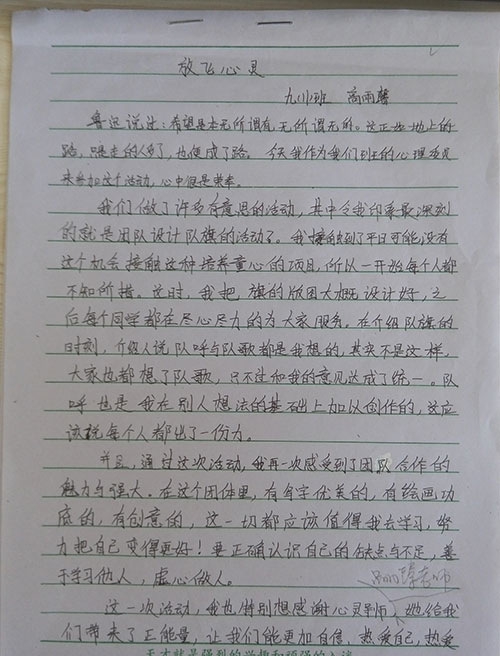 放飞心灵
九(1)班 高雨馨
鲁迅说过:希望是本无所谓有,无所谓无的。这正如地上的
路,走的人多了,也便成了路。今天我作为我们班的心理委员
来参加这个活动,心中很是荣幸。
我们做了许多有意思的活动,其中令我印象最深刻
的就是团队设计队旗的活动了。我接触到了平日可能没有
这个机会接触这种培养童心的项目,所以一开始每个人都
不知所措。这时,我把旗的版图大概设计好,之
后每个同学都在尽心尽力的为大家服务。在介绍队旗的
时刻,介绍人说队呼与队歌都是我想的,其实不是这样,
大家也都想了队歌,只不过和我的意见达成了统一。队
呼也是我在别人想法的基础上加以创作的,这应
该说每个人都出了一份力。
并且,通过这次活动,我再一次感受到了团队合作的
魅力与强大。在这个团体里,有写字优美的,有绘画功
底的,有创意的,这一切都应该值得我去学习,努
力把自己变得更好!要正确认识自己的缺点与不足,善
于学习他人,虚心做人。
老师
这一次活动,我也特别想感谢心灵导师,她给我
们带来了正能量,让我们能更加自信,热爱自己,热爱